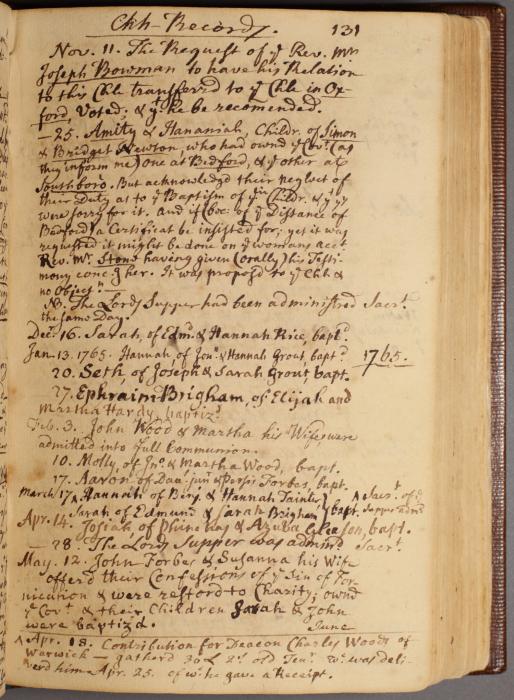 Chh-Records. 131
Nov. 11. The Request of yᵉ Rev. Mʳ
Joseph Bowman to have his Relation
to this Chh transferrd to yᵉ Chh in Ox-
ford, Voted; & yᵗ he be recomended.
— 25. Amity & Hananiah, Childr. of Simon
& Bridget Newton, who had ownd yᵉ Covᵗ (as
they inform me) One at Bedford, & yᵉ other at
Southboro. But acknowledgd their neglect of
their Duty as to yᵉ Baptism of yⁱʳ Childr. & yᵗ yʸ
were sorry for it. And if (bec. of yᵉ Distance of
Bedford) a Certificate be insisted for; yet it was
requested it might be done on yᵉ womans accᵗ.
Rev. Mʳ. Stone having given (orally) his Testi-
mony conc.g her. It was proposd to yᵉ Chh &
no Objectⁿ. —
NB. The Lords Supper had been administred Sacrᵗ.
the same Day.
Dec. 16. Sarah, of Edmᵈ. & Hannah Rice, baptᵈ.
Jan. 13. 1765. Hannah of Jonᵃ & Hannah Grout, baptᵈ. 1765.
20. Seth of Joseph & Sarah Grout, bapt.
27. Ephraim Brigham, of Elijah and
Martha Hardy, baptizᵈ
Feb. 3. John Wood & Martha his Wife were
admitted into full Communion.
10. Molly, of Jnᵒ. & Martha Wood, bapt.
17. Aaron of Dan. jun & Persis Forbes, bapt.
March 17 ∧ Hannah of Benj. & Hannah Tainter ∧ Sacrᵗ. of yᵉ
Sarah of Edmund & Sarah Brigham bapt. Supper admᵈ
Apr. 14. Josiah of Phinehas & Azuba Gleason, bapt.
— 28. The Lords Supper was adminᵈ. Sacrᵗ.
May. 12. John Forbes & Susanna his Wife
offerd their Confessions of yᵉ Sin of For-
nication & were restord to Charity; ownd
yᵉ Covᵗ & their Children Sarah & John
were baptizd.
June
∧ Apr. 18. Contribution for Deacon Charles Woods of
Warwick — gatherd 30£ 2ˢ. old Tenʳ. wᶜ. was deli-
verd him Apr. 25. of wᶜ he gave a Receipt.